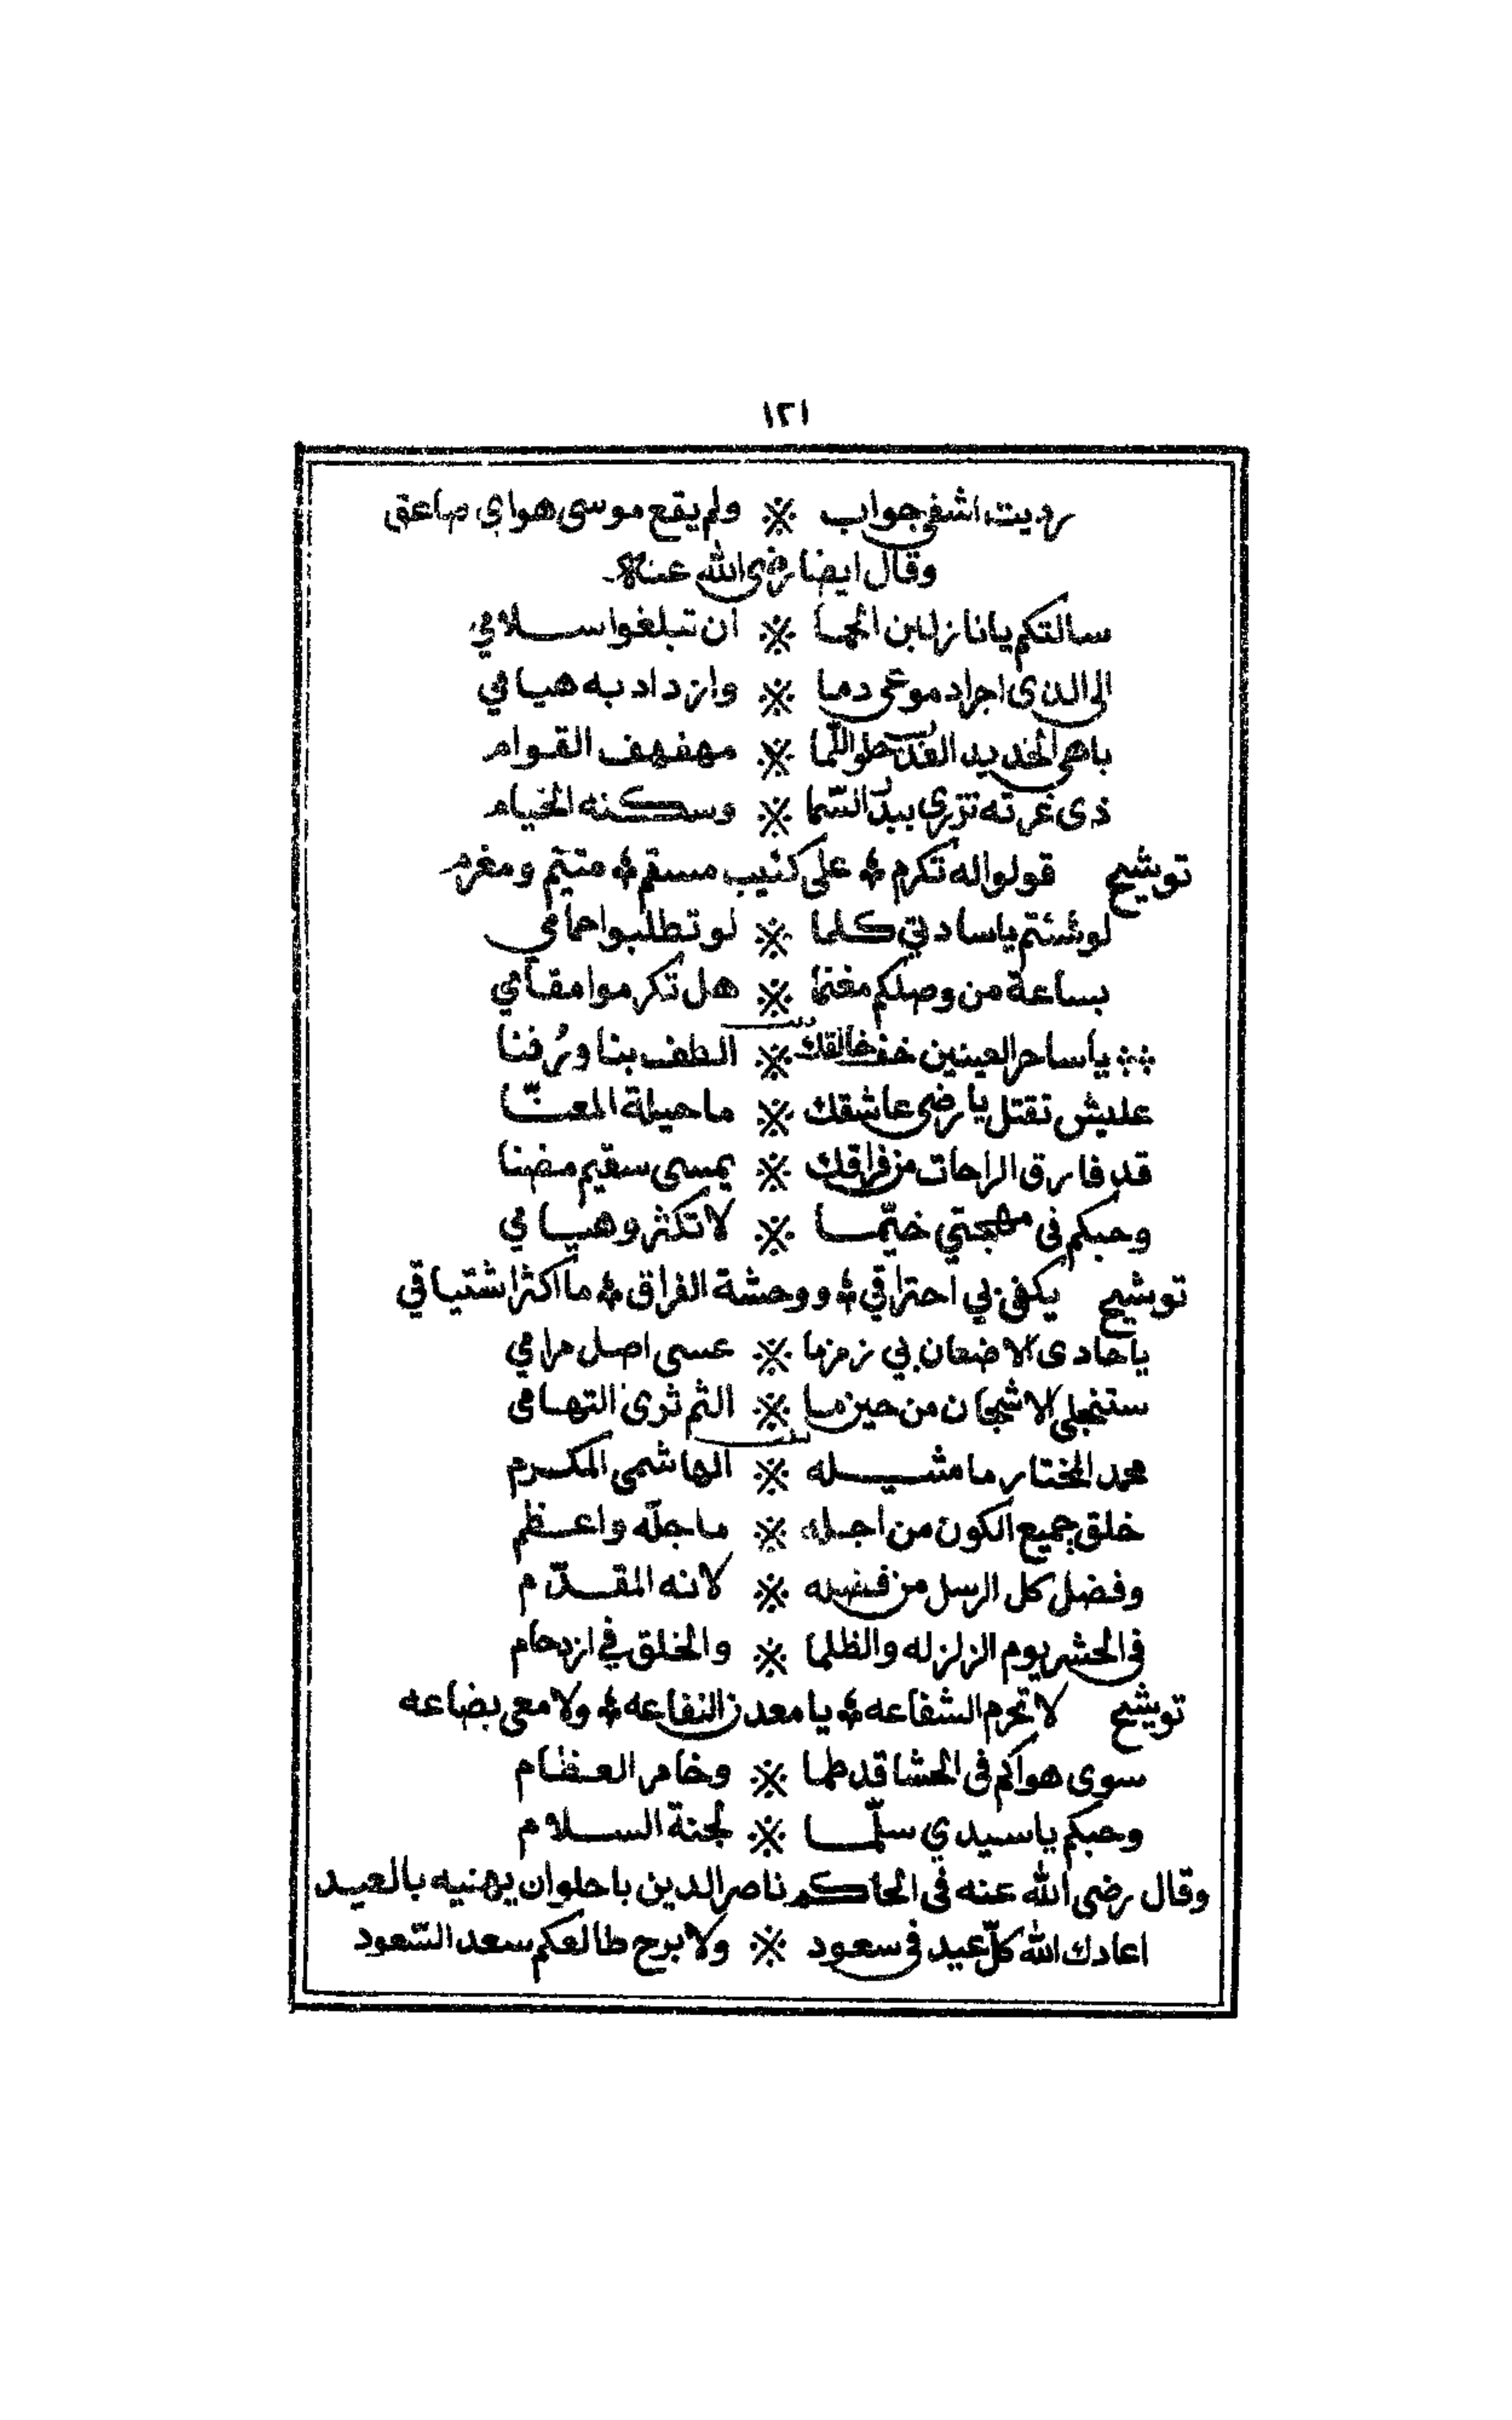 ١٢١
رديت اشفى جواب ※ ولم يقع موسى هواي صاعق
وقال ايضا رضى الله عنه
سالتكم يا نازلين الحما ※ ان تبلغوا سلامي
الى الذى اجرا دموعى دما ※ وازداد به هيامي
باهى الخديد العذب حلو اللّما ※ مهفهف القوام
ذى غرته تزري ببدر السّما ※ وسكنه الخيام
توشيح قولوا له تكرم ※ على كئيب مسقم ※ متيّم ومغرم
لو شئتم يا سادتي كلما ※ لو تطلبوا حمامى
بساعة من وصلكم مغنما ※ هل تكرموا مقامي
※ يا ساحر العينين خف خالقك ※ الطف بنا وزُفنا
عليش تقتل يا رضى عاشقك ※ ما حيلة المعنّا
قد فارق الراحات من فراقك ※ يمسى سقيم مضنا
وحبكم فى مهجتي خيّما ※ لا تكثروا هيامي
توشيح يكفى بي احتراقي ※ ووحشة الفراق ※ ما اكثر اشتياقي
يا حادى الاضعان بي زمزما ※ عسى اصل مرامي
ستنجلى الاشجان من حين ما ※ الثم ثرى التهامى
محمد المختار ما مثيله ※ الهاشمى المكرم
خلق جميع الكون من اجله ※ ما جلّه واعظم
وفضل كل الرسل من فضله ※ لانه المقدّم
فى الحشر يوم الزلزله والظلما ※ والخلق في ازدحام
توشيح لا تحرم الشفاعه ※ يا معدن النفاعه ※ ولا معى بضاعه
سوى هواكم فى الحشا قد طما ※ وخامر العظام
وحبكم يا سيدي سلّما ※ لجنة السلام
وقال رضى الله عنه فى الحاكم ناصر الدين باحلوان يهنيه بالعيد
اعادك الله كلّ عيد فى سعود ※ ولا برح طالعكم سعد السّعود